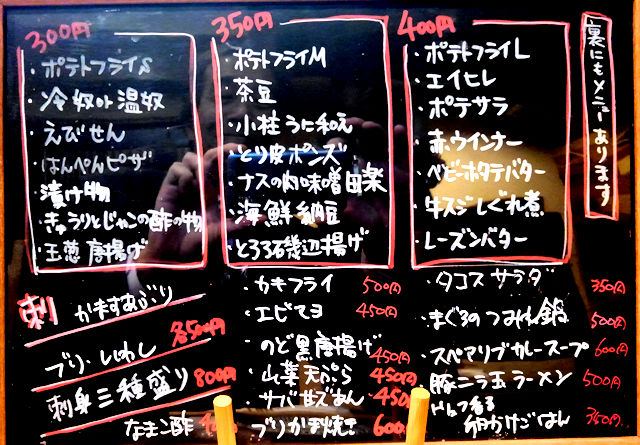 300円
・ポテトフライS
・冷奴or温奴
・えびせん
・はんぺんピザ
・漬け物
・きゅうりとじゃこの酢の物
・玉葱唐揚げ
350円
・ポテトフライM
・茶豆
・小柱うに和え
・とり皮ポンズ
・ナスの肉味噌田楽
・海鮮納豆
・とろろ磯辺揚げ
400円
・ポテトフライL
・エイヒレ
・ポテサラ
・赤ウインナー
・ベビーホタテバター
・牛スジしぐれ煮
・レーズンバター
裏にもメニューあります
刺 かますあぶり
ぶり・いわし 各500円
刺身三種盛り 800円
なまこ酢
・カキフライ 500円
・エビマヨ 450円
・のど黒唐揚げ 450円
・山菜天ぷら 450円
・サバ甘ズあん 450
・ぶりかま焼き 600
・タコスサラダ 350円
・まぐろのつみれ鍋 500円
・スペアリブカレースープ 600円
・豚ニラ玉ラーメン 500円
卵かけごはん 350円